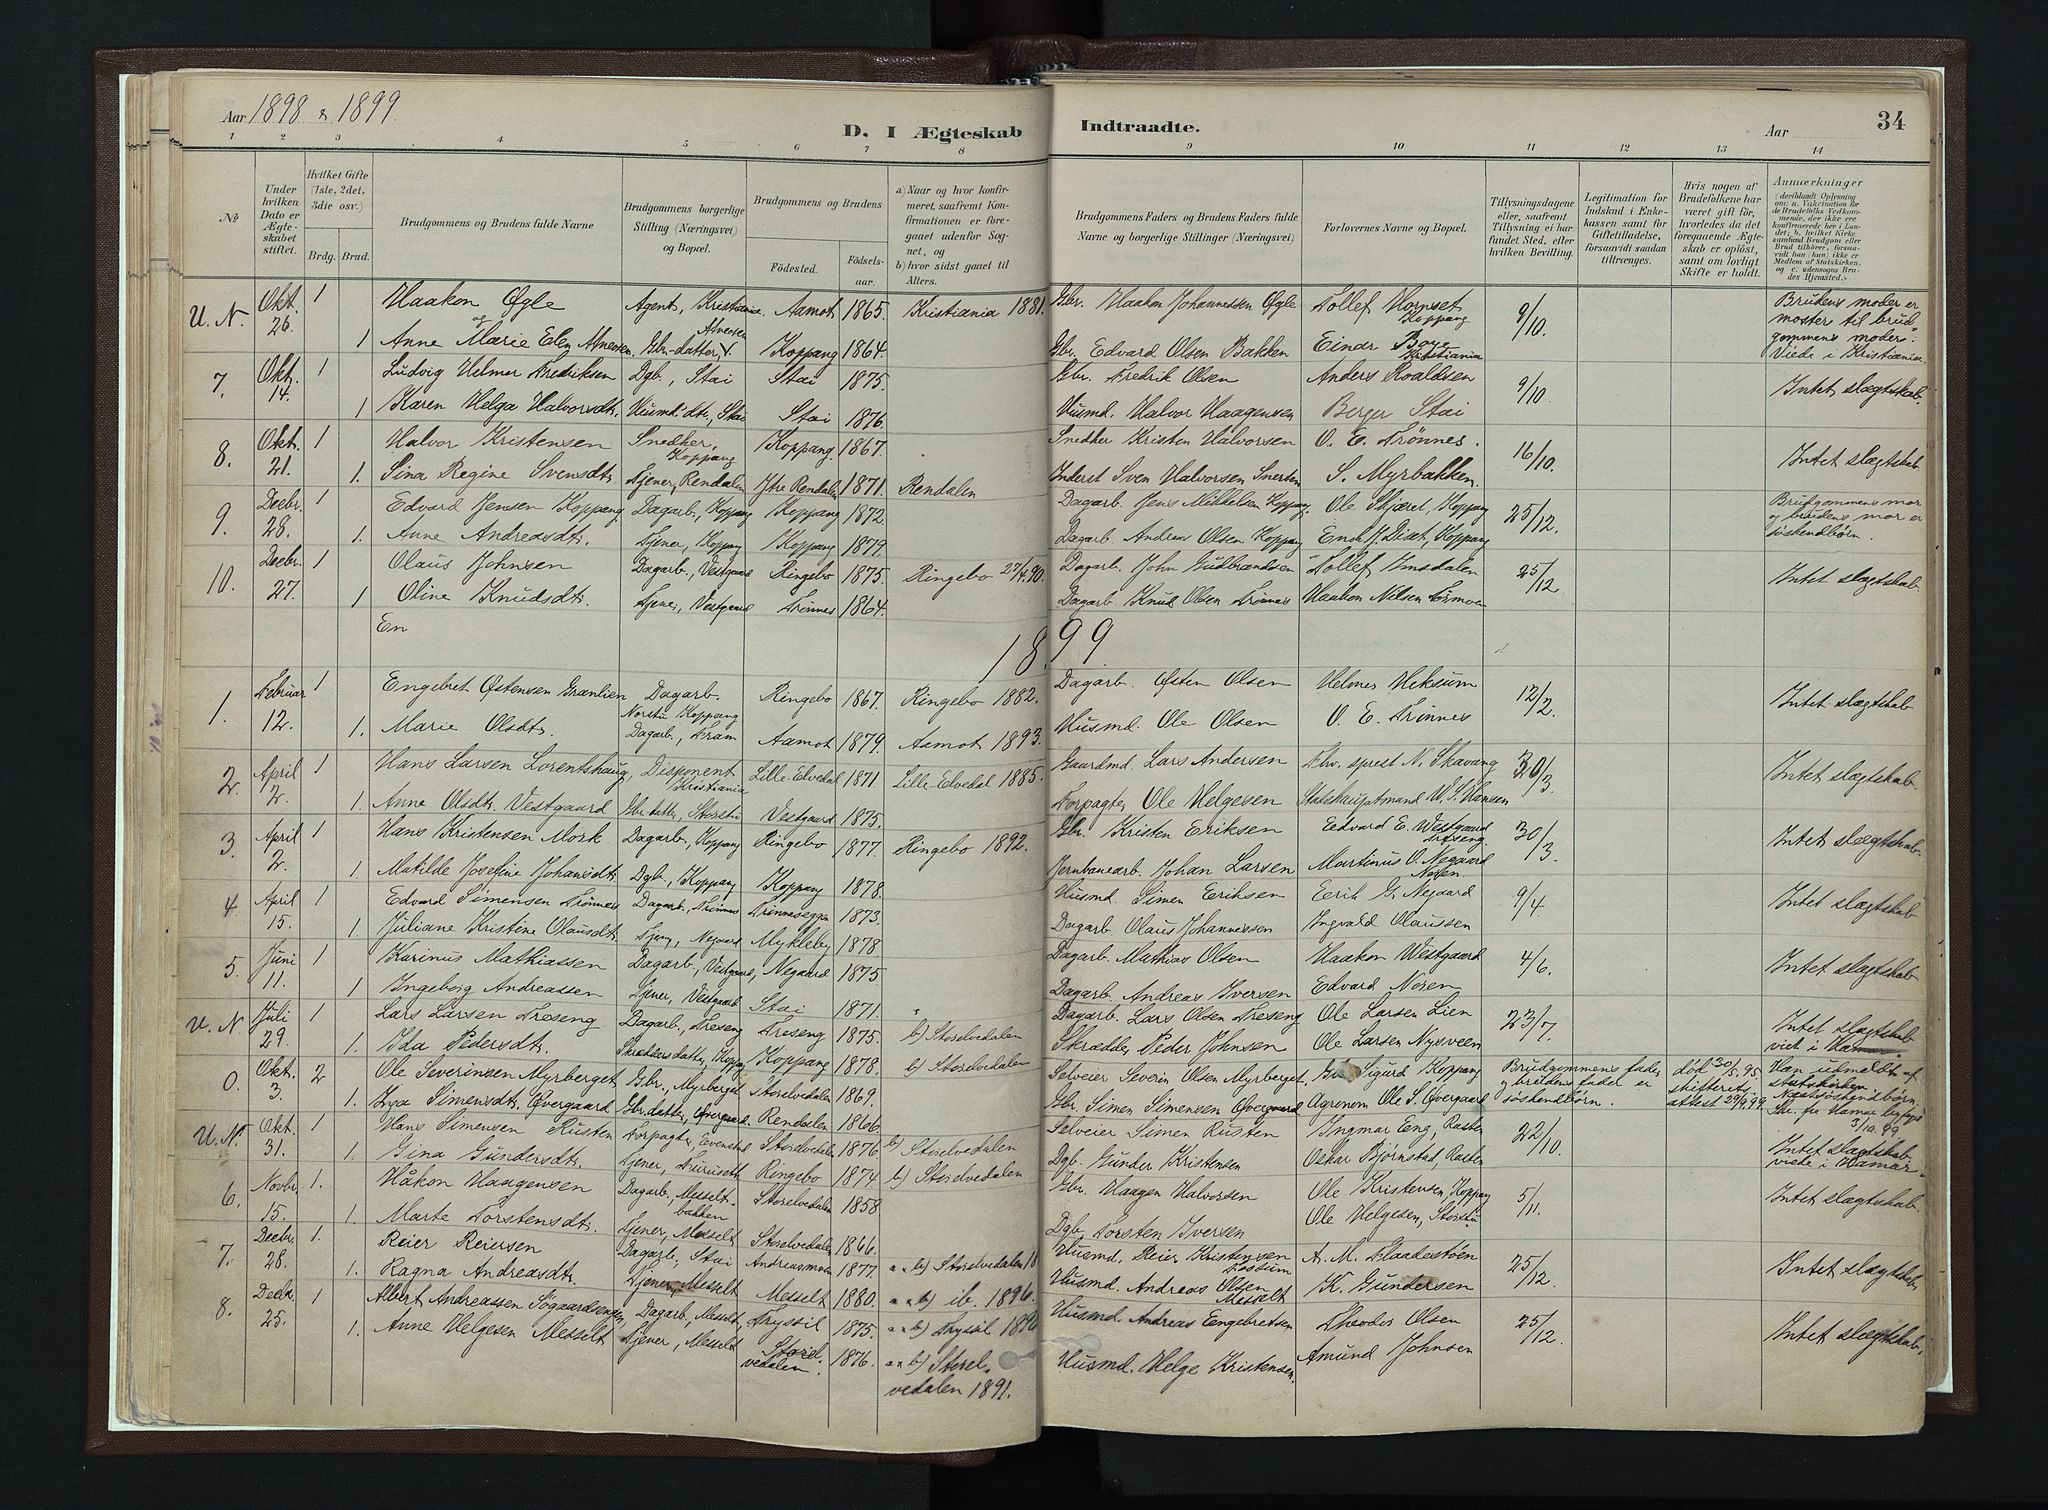 Aar 1898 & 1899.
D. I Ægteskab
Indtraadte.
Aar
34
1 2 3 4 5 6 7 8 9 10 11 12 13 14
No
Under hvilken Dato er Ægteskabet stiftet.
Hvilket Gifte (1ste, 2det, 3die osv.)
Brdg. Brud.
Brudgommens og Brudens fulde Navne
Brudgommens borgerlige Stilling (Næringsvei) og Bopæl.
Brudgommens og Brudens
Födested.
Födselsaar.
a) Naar og hvor konfirmeret, saafremt Konfirmationen er foregaaet udenfor Sognet, og
b) hvor sidst gaaet til Alters.
Brudgommens Faders og Brudens Faders fulde Navne og borgerlige Stillinger (Næringsvei)
Forlovernes Navne og Bopæl.
Tillysningsdagene eller, saafremt Tillysning ei har fundet Sted, efter hvilken Bevilling.
Legitimation for Indskud i Enkekassen samt for Giftetilladelse, forsaavidt saadan tiltrænges.
Hvis nogen af Brudefolkene har været gift för, hvorledes da det foregaaende Ægteskab er oplöst, samt om lovligt Skifte er holdt.
Anmærkninger
U. N. Okt. 26. 1 Haakon Øgle Agent, Kristiania Aamot 1865. Kristiania 1881. Gbr. Haakon Johannessen Øgle Tollef Hornset Koppang 9/10. Brudens moder er moster til brudgommens moder. Viede i Kristiania
og
1 Anne Marie Elen Alvesen. Gbr-datter, Koppang 1864. Gbr. Edvard Olsen Bakken Einar Boye Kristiania
7. Okt. 14. 1 Ludvig Helmer Fredriksen Dgb., Stai Stai 1875. Gbr. Fredrik Olsen Anders Roaldsen 9/10. Intet slægtskab.
1 Karen Helga Halvorsdtr. Husmd.dtr, Stai Stai 1876. Husmd. Halvor Haagensen Berger Stai
8. Okt. 21. 1 Halvor Kristensen Snedker, Koppang Koppang. 1867. Snedker Kristen Halvorsen O. E. Trønnes. 16/10. Intet slægtskab
1. Sina Regine Svensdtr. Tjener, Rendalen Ytre Rendalen 1871. Rendalen Inderst Sven Halvorsen S. Myrbakken.
9. Decbr. 28. 1 Edvard Jensen Koppang Dagarb., Koppang Koppang 1872 Dagarb. Jens Mikkelsen Koppang. Ole Skjæret, Koppang 25/12. Brudgommens mor og brudens mor er søskendbörn.
1. Anne Andreasdtr. Tjener, Koppang Koppang 1879. Dagarb. Andreas Olsen Koppang
10. Decbr. 27. 1 Olaus Johnsen Dagarb., Vestgaard Ringebo 1875. Ringebo 27/4.90. Dagarb. John Gudbrandsen Tollef Imsdalen 25/12 Intet slægtskab.
1 Oline Knudsdtr. Tjener, Vestgaard Trönnes 1864. Dagarb. Knud Olsen Trönnes Haakon Nilsen Tørmoen
En
1899
1. Februar 12. 1 Engebret Østensen Grænlien Dagarb. Norstu Koppang Ringebo 1867. Ringebo 1882. Dagarb. Østen Olsen Helmer Heksum 12/2. Intet slægtskab
1. Marie Olsdtr. Dagarb., Fram Aamot 1879. Aamot 1893. Husmd. Ole Olsen O. E. Trønnes
2. April 2. 1 Hans Larsen Lorentshaug, Disponent Kristiania Lille-Elvedal 1871. Lille-Elvedal 1885. Gaardmd. Lars Andersen N. Skavang 30/3. Intet slægtskab.
1. Anne Olsdtr. Vestgaard Gbr.datter, Storstu Vestgaard 1875. Forpagter Ole Helgesen Stadshauptmand W. S. Hansen
3. April 2. 1 Hans Kristensen Mork Dagarb., Koppang Ringebo 1877. Ringebo 1892. Gbr. Kristen Eriksen Edvard E. Westgaard 30/3 Intet slægtskab.
1 Matilde Josefine Johansdtr. Dgb., Koppang Koppang 1878. Jernbanearb. Johan Larsen Martinus O. Negaard Noren
4. April 15. 1 Edvard Simensen Trönnes Dagarb., Trönnes Trönneseggen 1873. Husmd. Simen Eriksen Eerik G. Negaard 9/4. Intet slægtskab
1. Juliane Kristine Olausdtr. Tjener, Negaard Mykleby 1878 Dagarb. Olaus Johannessen Ingvald Olaussen
5. Juni 11. 1 Karinus Mathiassen Dagarb., Vestgaard, Negaard 1875 Dagarb. Mathias Olsen Haakon Westgaard 4/6. Intet slægtskab
1 Ingeborg Andreassen Tjener, Vestgaard Stai 1871. Dagarb. Andreas Iversen Edvard Noren
U. N. Juli 29. 1 Lars Larsen Treseng Dagarb., Treseng Treseng 1875. b) Storelvedalen Dagarb. Lars Olsen Treseng Ole Larsen Lien 23/7. Intet slægtskab viet i Hamar.
1. Ida Pedersdtr. Skrædders datter, Koppang Koppang 1878. b) Storelvedalen Skrædder Peder Johnsen Ole Larsen Nysveen
0. Okt. 3. 2 Ole Severinsen Myrberget Gbr., Myrberget Storelvedalen 1869. Selveier Severin Olsen Myrberget. Sigurd Koppang Brudgommens fader og brudens fader er söskendbörn. död 30/5.95 skifteretsattest 29/9.99. Han udmeldt af statskirken. Næstsöskendbörn. 3/10.99.
1. Simensdtr. Øvergaard Gbr.datter, Øvergaard Rendalen 1866 Gbr. Simen Simensen Øvergaard Agronom Ole S. Øvergaard
U. N. Okt. 31. 1 Hans Simensen Rusten Forpagter, Evenstad Storelvedalen 1876 b) Storelvedalen Selveier Simen Rusten Ingmar Eng, Rasten 22/10. Intet slægtskab. viede i Hamar.
1. Gina Gundersdtr. Tjener, Furuseth Ringebo 1874 b) Storelvedalen Dgb. Gunder Kristensen Oskar Bjørnstad, Rasten
6. Novbr. 15. 1. Håkon Haagensen Dagarb., Messeltbakken Storelvedalen 1858 Gbr. Haagen Halvorsen Ole Kristensen, Koppang 5/11. Intet slægtskab.
1. Marte Torstensdtr. Tjener, Messelt Storelvedalen 1866. Dgb. Torsten Iversen Ole Helgesen, Storstu
7. Decbr. 28. 1. Reier Reiersen Dagarb., Stai Andreasmoen 1877. a & b) Storelvedalen 18 Husmd. Reier Kristensen A. M. Haadestøen 25/12. Intet slægtskab
1. Ragna Andreasdtr. Tjener, Messelt Messelt 1880. a & b) ib. 1896. Husmd. Andreas Olsen Messelt K. Gundersen
8. Decbr. 25. 1 Albert Andreassen Søgaardsengen, Dagarb., Messelt, Trysil 1875. a & b) Trysil 1890 Husmd. Andreas Engebretsen Theodor Olsen 25/12. Intet slægtskab.
1. Anne Helgesen Messelt Tjener, Messelt Storelvedalen. 1876. a & b) Storelvedalen 1891. Husmd. Helge Kristensen. Amund Johnsen